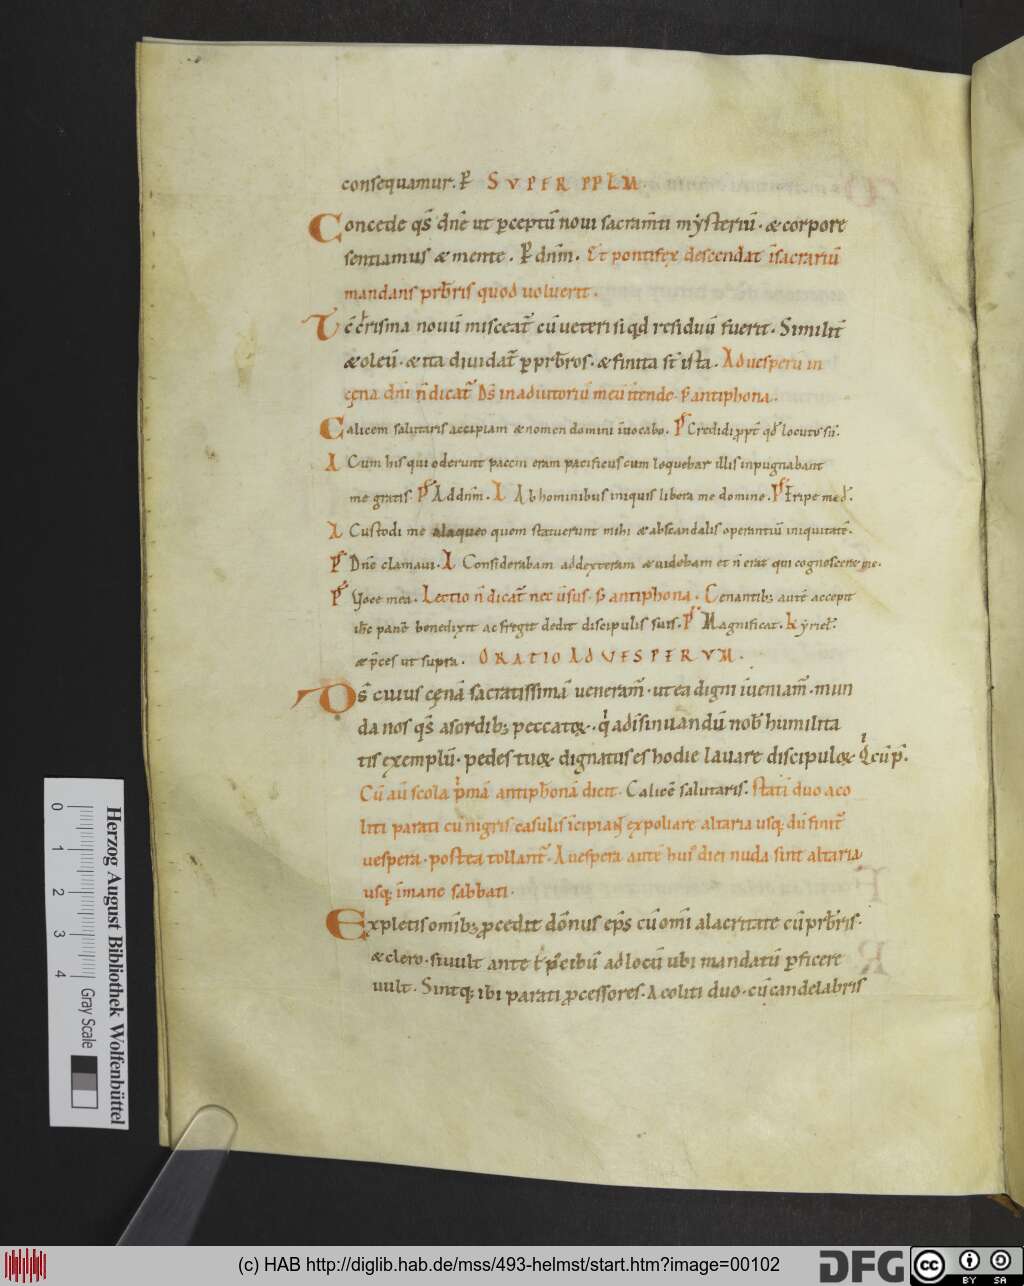 consequamur. P̄ SVPER PPLM.
Concede qs̄ dn̄e ut ꝑceptū noui sacram̄ti mẏsteriū · & corpore
sentiamus & mente . P̄ dn̄m . Et pontifex descendat īsacrariū
mandans prb̄ris quod uoluerit .
Vt c̄risma nouū misceat̄ cū ueteri si qd̄ residuū fuerit . Similit̄
& oleū · & ita diuidat̄ ꝑ prb̄ros · & finita st̄ ista . Ad uesperū in
cęna dn̄i n̄ dicat̄ Ds̄ in adiutoriū meū ītende · s̄ antiphona .
Calicem salutaris accipiam & nomen domini īuocabo . P̄s Credidi ꝓpt̄ qd̄ locutus sū .
A Cum his qui oderunt pacem eram pacificus cum loquebar illis inpugnabant
me gratis . P̄s Ad dn̄m . A Ab hominibus iniquis libera me domine . P̄s Eripe me d̄ .
A Custodi me alaqueo quem statuerunt mihi & abscandalis operantiū iniquitatē .
P̄s Dn̄e clamaui . A Considerabam addexteram & uidebam et n̄ erat qui cognosceret me .
P̄s Uoce mea . Lectio n̄ dicat̄ nec ūsus · s̄ antiphona . Cenantib; autē accepit
ih̄c panē benedixit ac fregit dedit discipulis suis . P̄s Magnificat . kẏriel̄ .
& p̄ces ut supra . ORATIO AD VESPERVM .
Ds̄ cuius cęnā sacratissimā ueneram̄ · ut ea digni īueniam̄ · mun
da nos qs̄ asordib; peccatoꝝ · q̇ adīsinuandū nob̄ humilita
tis exemplū · pedes tuoꝝ dignatus es hodie lauare discipuloꝝ · Q̇ cū p̄ .
Cū aū scola ṗmā antiphonā dicit . Calicē salutaris . stati duo aco
liti parati cū nigris casulis īcipiant expoliare altaria usq; dū finit̄
uespera · postea tollant̄ . A uespera autē hui' diei nuda sint altaria
usq; īmane sabbati .
Expletis omīb; ꝓcedit dōnus ep̄s cū omī alacritate cū prb̄ris ·
& clero · si uult ante ł p' cibū ad locū ubi mandatū ꝑficere
uult . Sintq; ibi parati ꝓcessores . Acoliti duo · cū candelabris
Herzog August Bibliothek Wolfenbüttel
0 1 2 3 4 Gray Scale
(c) HAB http://diglib.hab.de/mss/493-helmst/start.htm?image=00102
DFG
cc BY SA